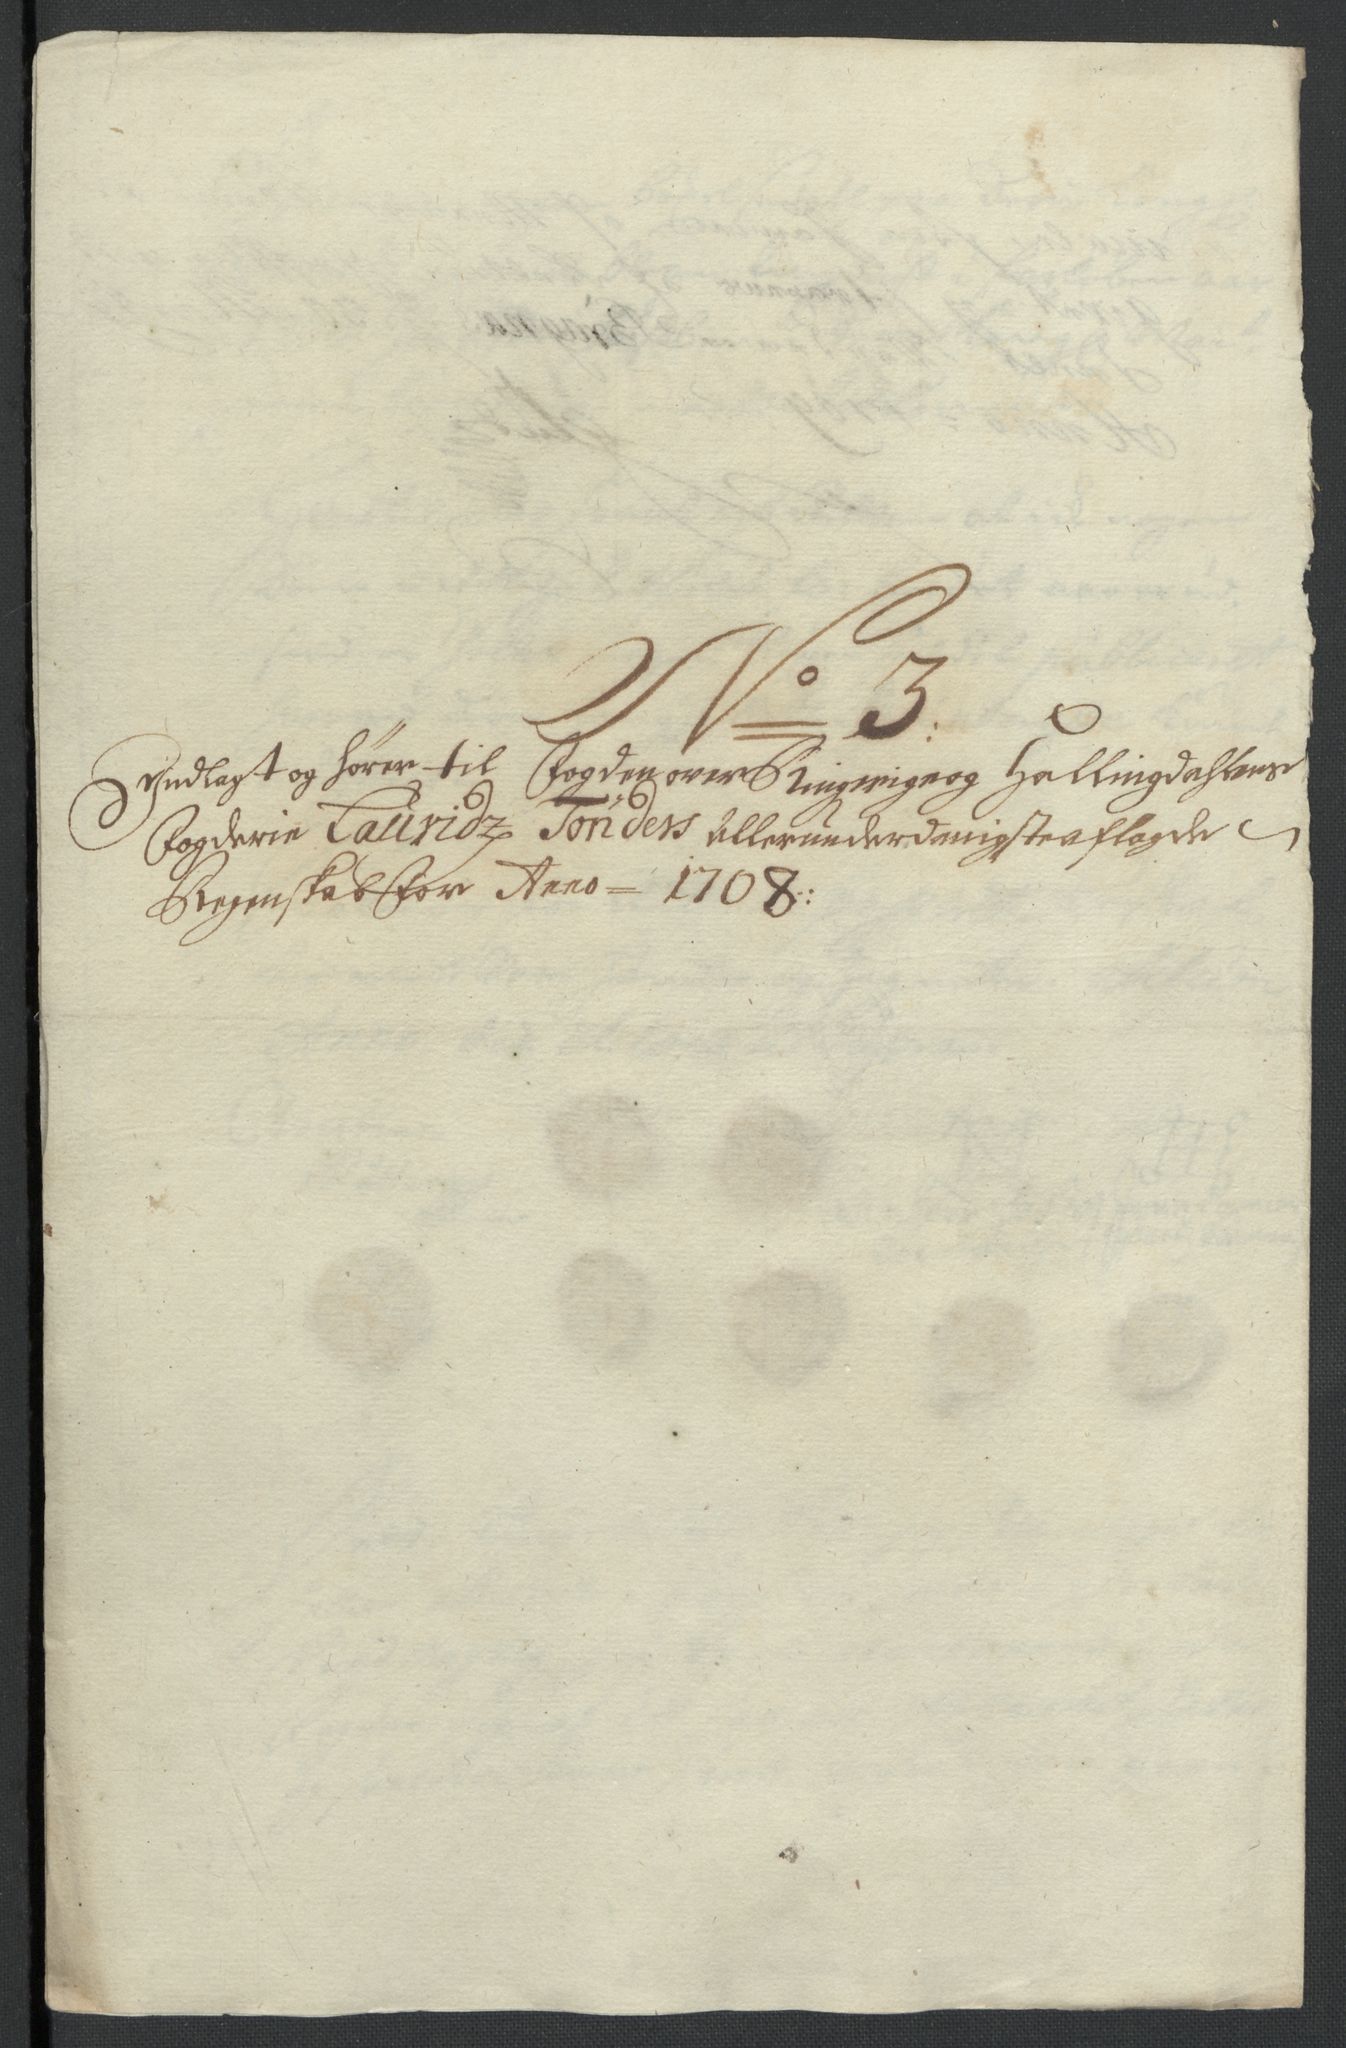 No 3:
Indlagt og hører til Fogden over Ringerige og Hallingdahlens
Fogderie Lauridz Tønders Allerunderdanigste aflagde
Regenskab for Anno = 1708: